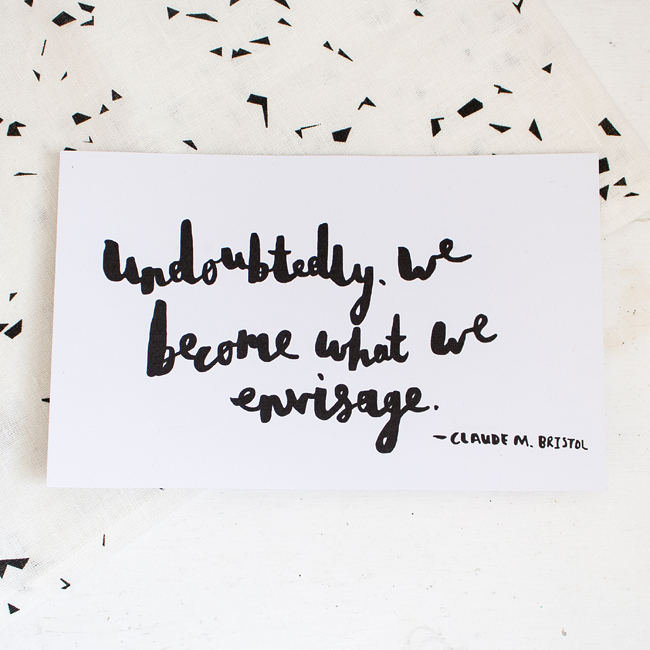 undoubtedly, we
become what we
envisage.
– CLAUDE M. BRISTOL